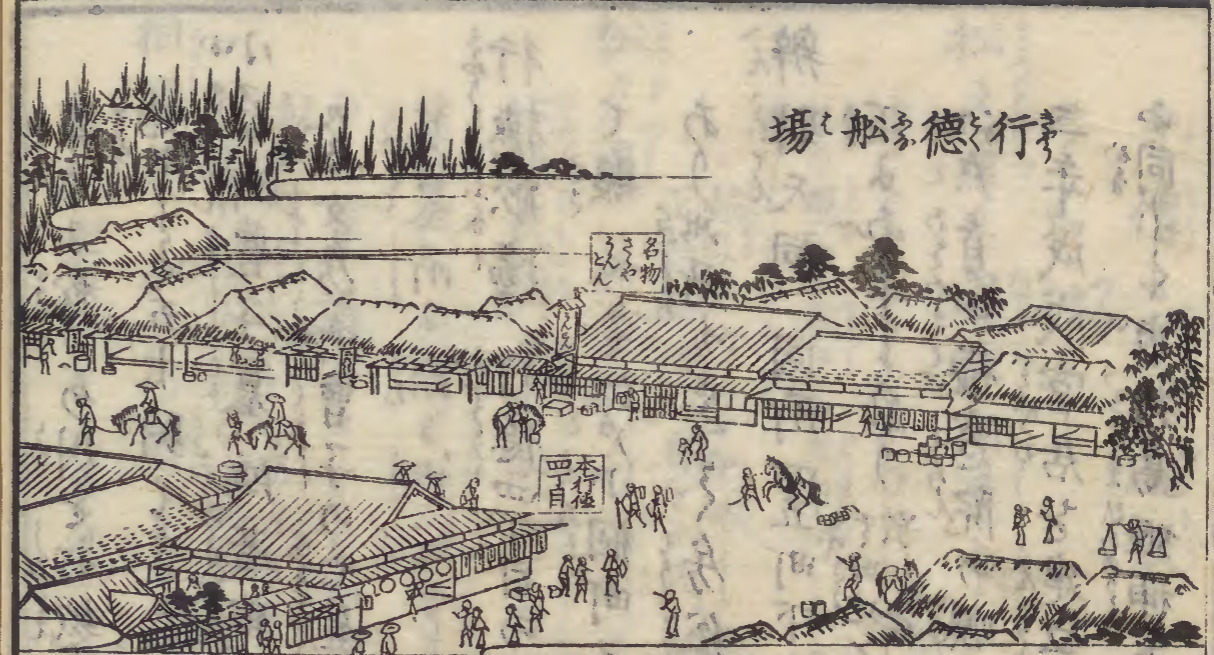 行德舩場
名物
さゝや
うんとん
うんとん
本行德
四丁目